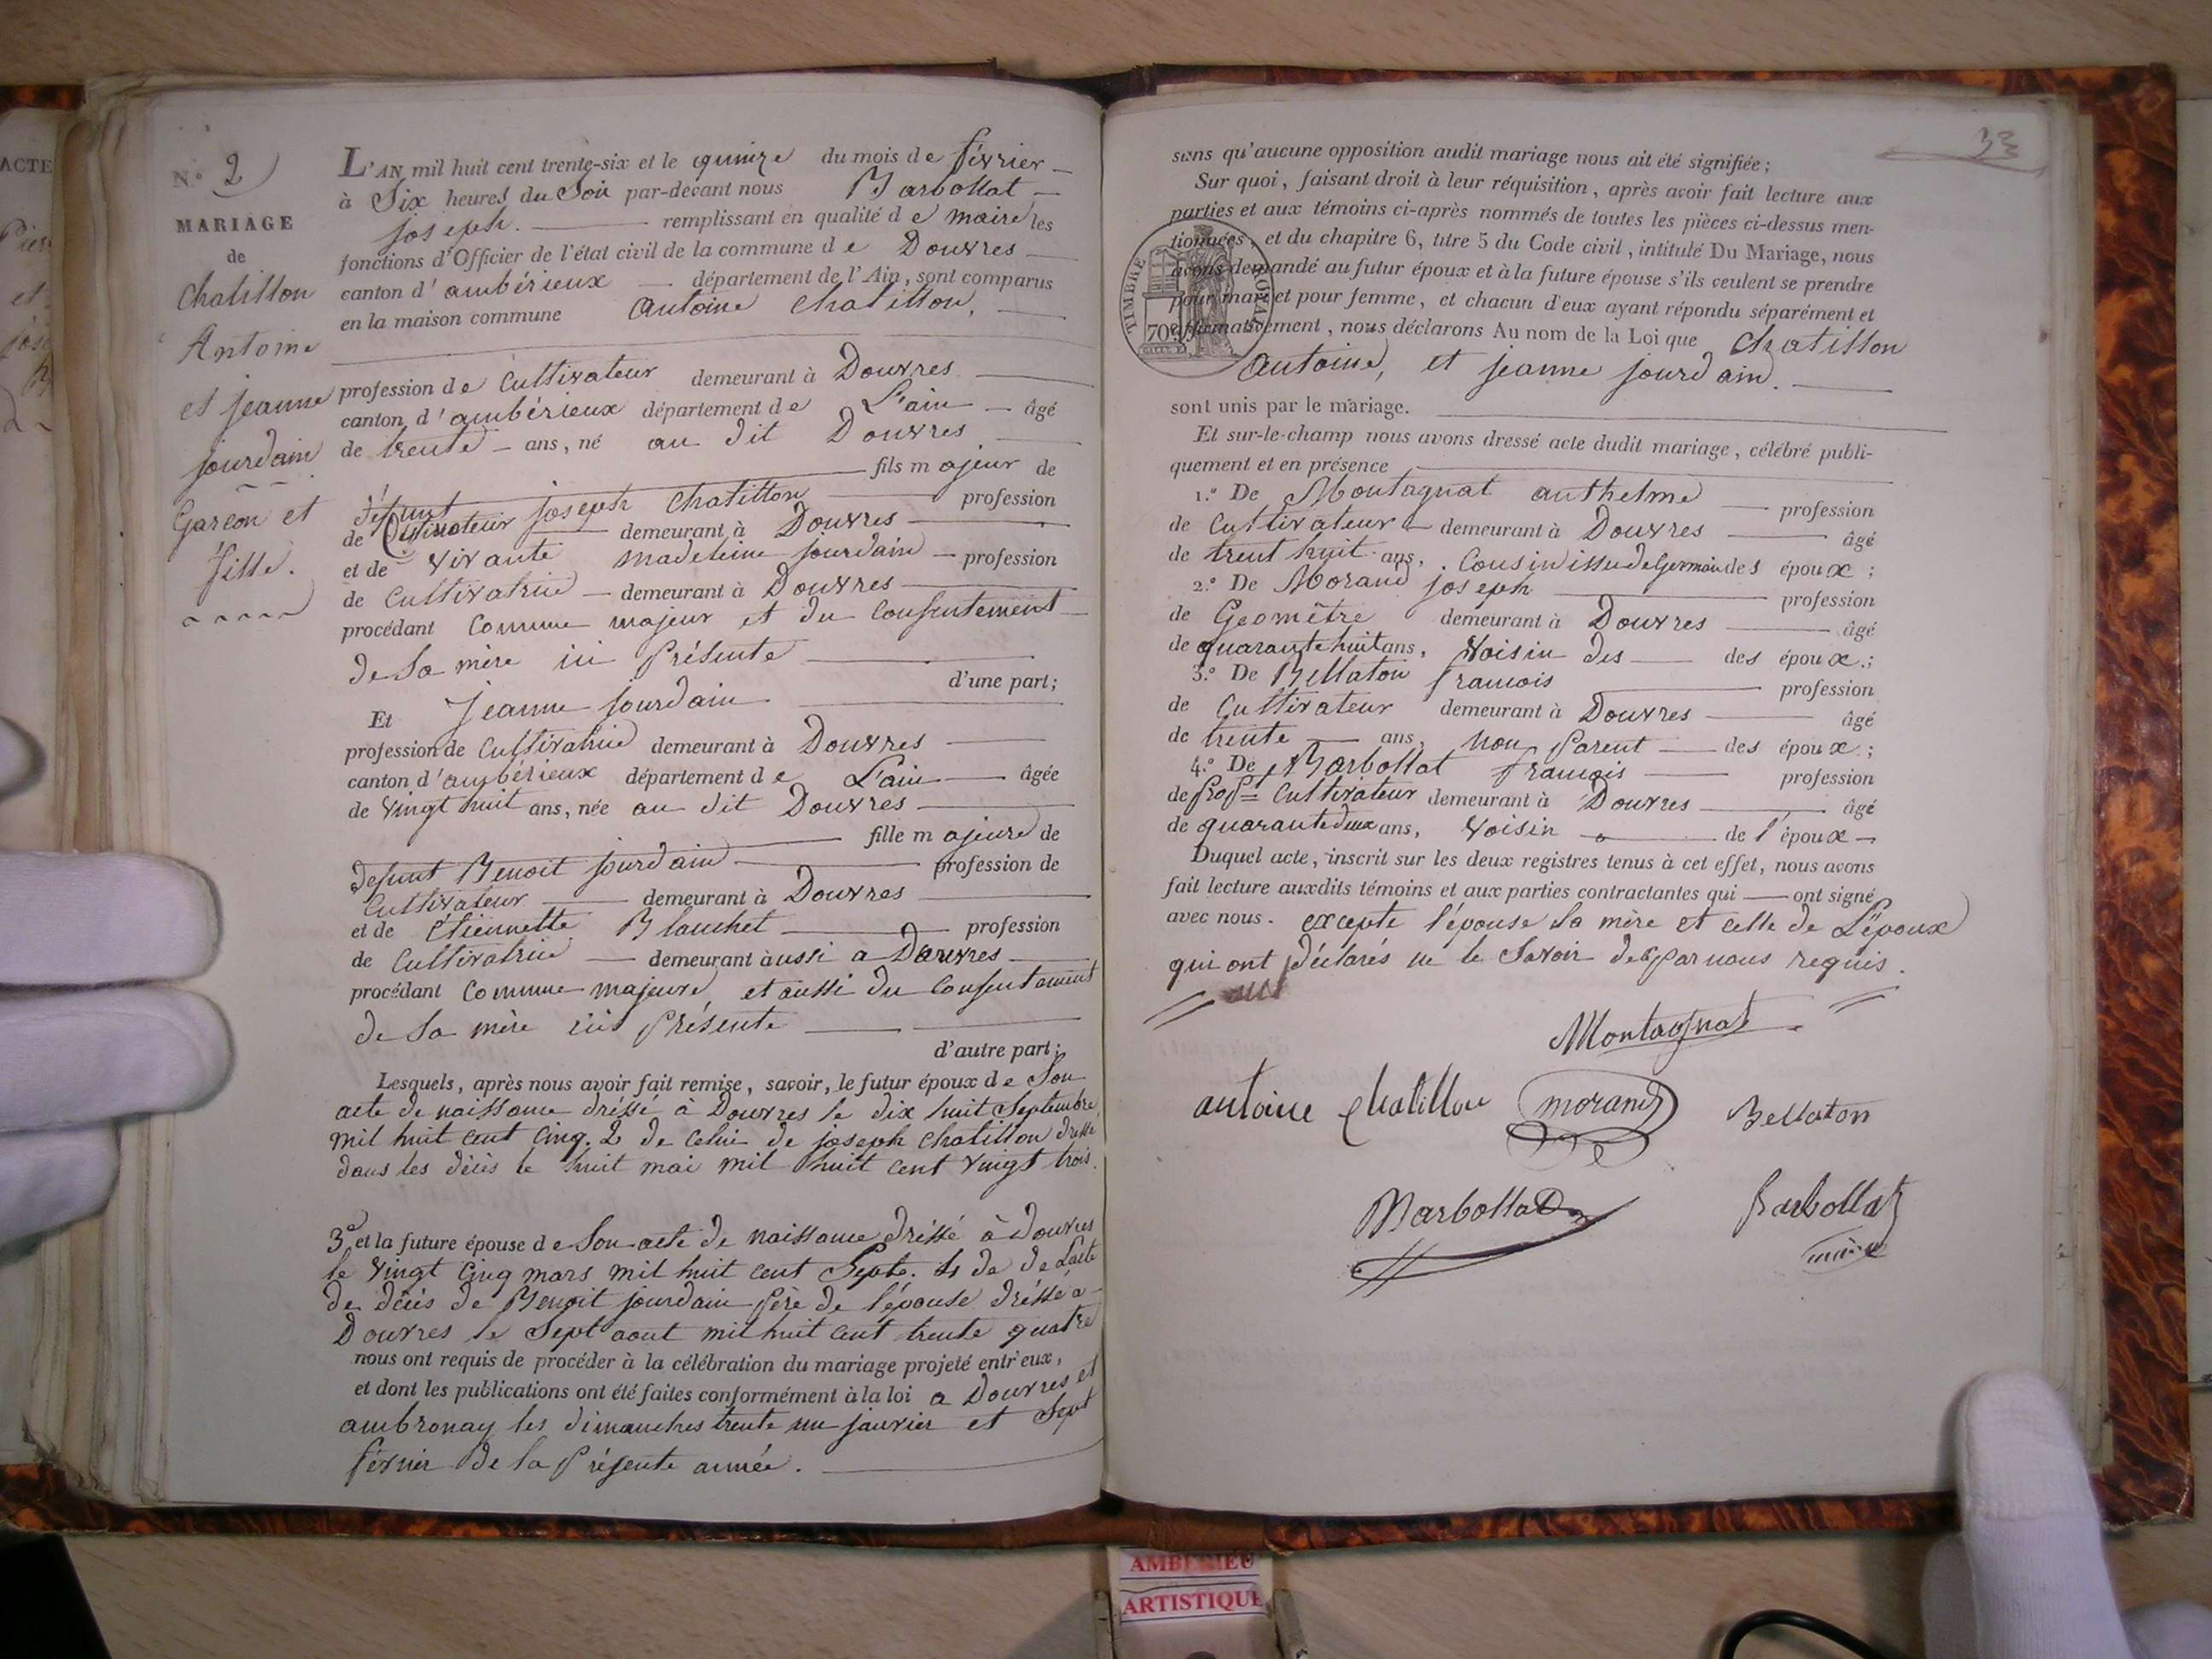 ACTE
N.º 2
MARIAGE
de
Chatillon
Antoine
et jeanne
jourdain
Garçon et
fille.
L'AN mil huit cent trente-six et le quinze du mois de février
à Six heures du Soir par-devant nous Barbollat
joseph. remplissant en qualité de maire les
fonctions d'Officier de l'état civil de la commune de Douvres
canton d'ambérieux département de l'Ain, sont comparus
en la maison commune Antoine Chatillon,
profession de Cultivateur demeurant à Douvres
canton d'ambérieux département de L'ain âgé
de trente ans, né au dit Douvres
fils majeur de
défunt joseph Chatillon profession
de Cultivateur demeurant à Douvres
et de vivante madeleine jourdain profession
de Cultivatrice demeurant à Douvres
procédant Comme majeur et du Consentement
de Sa mère ici Présente
d'une part;
Et Jeanne jourdain
profession de Cultivatrice demeurant à Douvres
canton d'ambérieux département de L'ain âgée
de vingt huit ans, née au dit Douvres
fille majeure de
defunt Benoit jourdain profession de
Cultivateur demeurant à Douvres
et de Etiennette Blanchet profession
de Cultivatrice demeurant àussi a Douvres
procédant Comme majeure, et aussi du Consentement
de Sa mère ici Présente
d'autre part;
Lesquels, après nous avoir fait remise, savoir, le futur époux de Son
acte de naissance dréssé à Douvres le dix huit Septembre
mil huit cent cinq. 2 de celui de joseph Chatillon dressé
dans les décès le huit mai mil huit cent vingt trois.
3º et la future épouse de Son acte de naissance dréssé à Douvres
le vingt cinq mars mil huit cent Septe. 4 de de Lacte
de décès de Benoit jourdain Père de l'épouse dréssé a
Douvres le Sept aout mil huit cent trente quatre
nous ont requis de procéder à la célébration du mariage projeté entr'eux,
et dont les publications ont été faites conformément à la loi a Douvres et
ambronay les dimanches trente un janvier et Sept
février de la Présente année.
33
sans qu'aucune opposition audit mariage nous ait été signifiée;
Sur quoi, faisant droit à leur réquisition, après avoir fait lecture aux
parties et aux témoins ci-après nommés de toutes les pièces ci-dessus men-
tionnées, et du chapitre 6, titre 5 du Code civil, intitulé Du Mariage, nous
avons demandé au futur époux et à la future épouse s'ils veulent se prendre
pour mari et pour femme, et chacun d'eux ayant répondu séparément et
affirmativement, nous déclarons Au nom de la Loi que Chatillon
Antoine, et jeanne jourdain.
TIMBRE ROYAL
70
sont unis par le mariage.
Et sur-le-champ nous avons dressé acte dudit mariage, célébré publi-
quement et en présence
1.º De Montagnat anthelme profession
de Cultivateur demeurant à Douvres âgé
de trent huit ans, Cousin issu de Germain des époux;
2.º De Morand joseph profession
de Geomètre demeurant à Douvres âgé
de quarante huit ans, Voisin des des époux;
3.º De Bellaton francois profession
de Cultivateur demeurant à Douvres âgé
de trente ans, Non Parent des époux;
4.º De Barbollat françois profession
de prop.re Cultivateur demeurant à Douvres âgé
de quarante deux ans, Voisin de l'époux
Duquel acte, inscrit sur les deux registres tenus à cet effet, nous avons
fait lecture auxdits témoins et aux parties contractantes qui ont signé
avec nous. excepte l'épouse Sa mère et celle de L'époux
qui ont déclarés ne le Savoir de par nous requis.
Montagnat
antoine Chatillon morand Bellaton
Barbollat Barbollat
maire
AMBERIEU
ARTISTIQUE